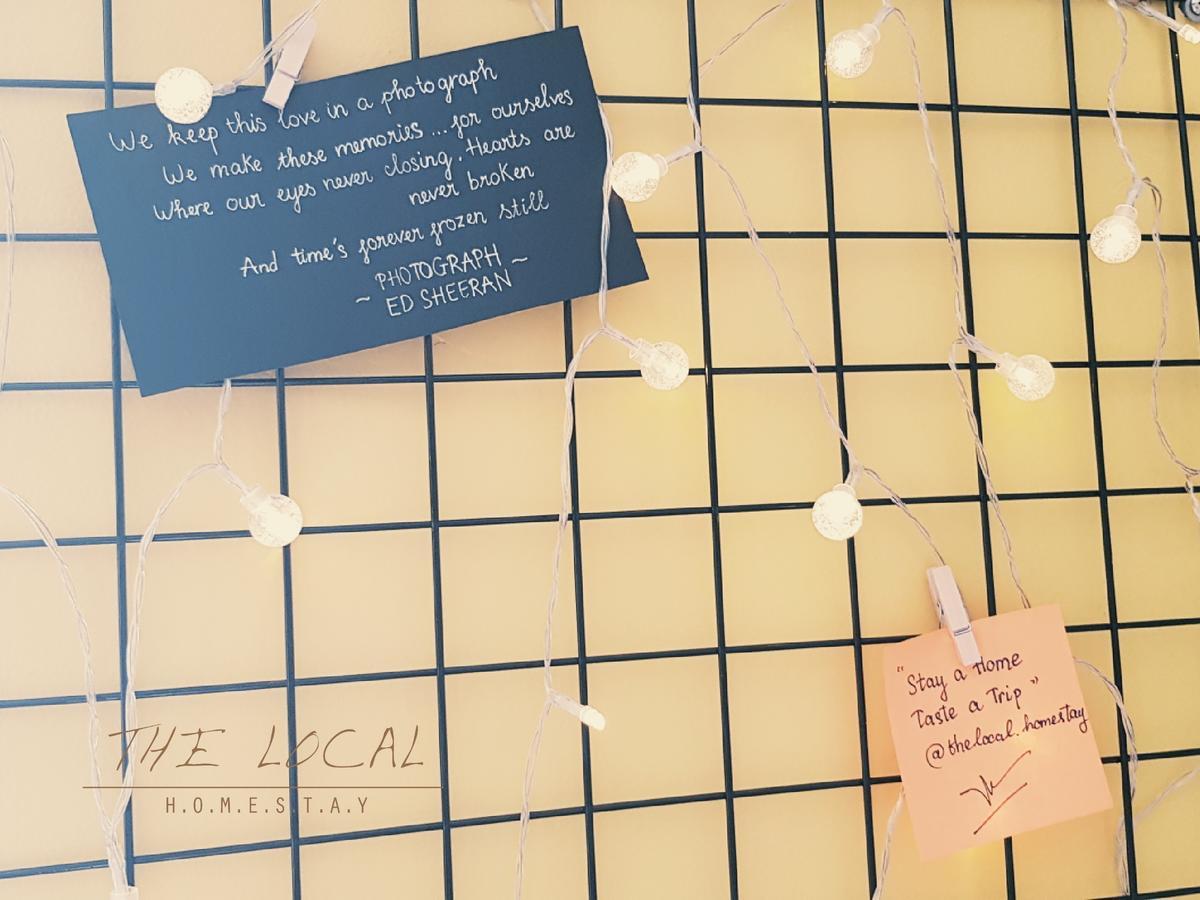 We keep this love in a photograph
We make these memories ... for ourselves
Where our eyes never closing. Hearts are
never broken
And time's forever frozen still
~ PHOTOGRAPH ~
ED SHEERAN
"Stay a Home
Taste a Trip"
@the.local.homestay
THE LOCAL
H.O.M.E.S.T.A.Y